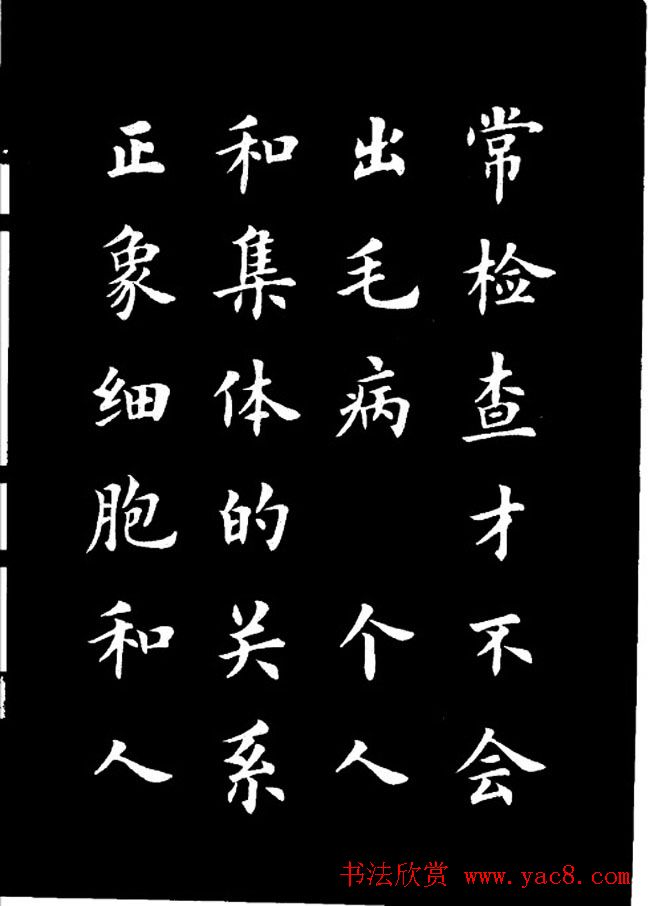 常检查才不会
出毛病 个人
和集体的关系
正象细胞和人
书法欣赏 www.yac8.com